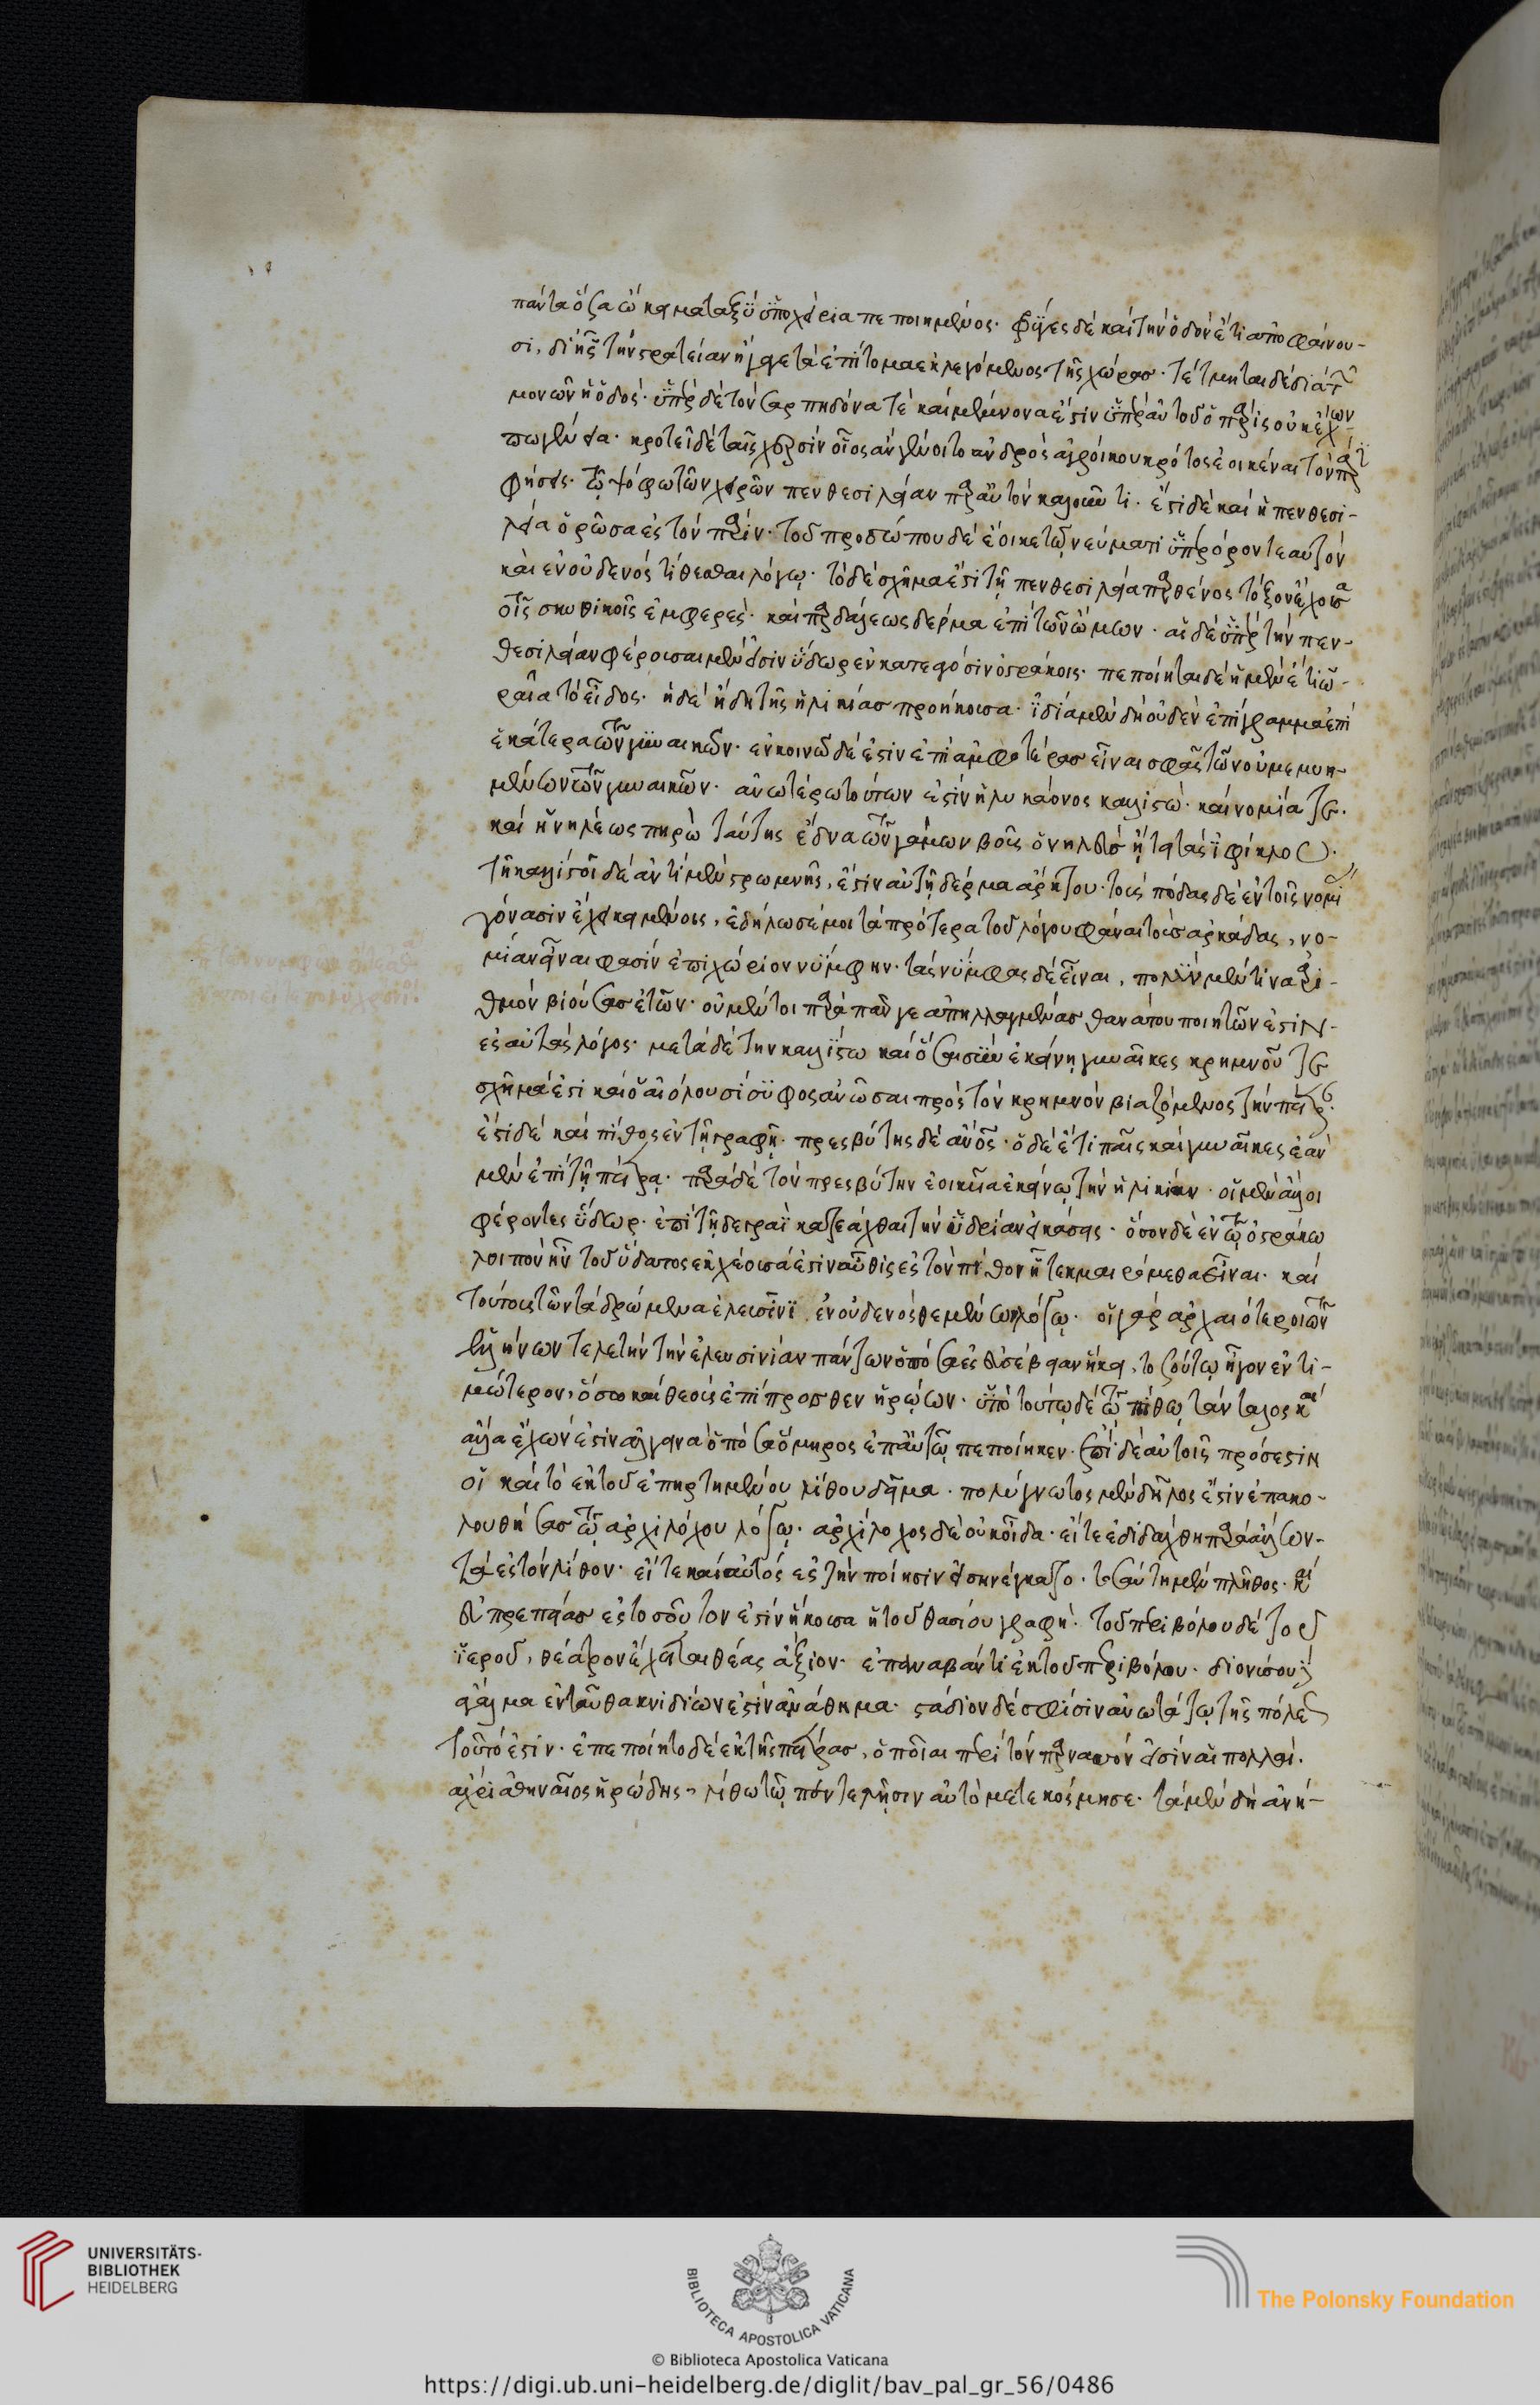 πάντα ὅσα ᾤκει μεταξὺ ὑποχείρια πεποιημένος. φρύγες δὲ καὶ τὴν ὁδὸν ἔτι ἀποφαίνου-
σι, δι' ἧς τὴν στρατείαν ἤγαγε τὰ ἐπίτομα ἐκλεγόμενος τῆς χώρας. τέτμηται δὲ διὰ τ
μονῶν ἡ ὁδός. ὑπὲρ δὲ τὸν σαρπηδόνα τὲ καὶ μέμνονα ἐστὶν ὑπὲρ αὐτοὺς ὁ πάρις οὐκ ἔχων
πω γένεια. κροτεῖ δὲ ταῖς χερσὶν οἷος ἂν γένοιτο ἀνδρὸς ἀγροίκου κρότος ἐοικέναι τὸν πάριν
φήσεις. τῷ ψόφῳ τῶν χειρῶν πενθεσίλειαν παρ' αὑτὸν καλοῦντι. ἔστι δὲ καὶ ἡ πενθεσί-
λεια ὁρῶσα ἐς τὸν πάριν. τοῦ προσώπου δὲ ἔοικε τῷ νεύματι ὑπερόρον τε αὐτὸν
καὶ ἐν οὐδενὸς τίθεσθαι λόγῳ. τὸ δὲ σχῆμα ἐστὶ τῇ πενθεσιλείᾳ παρθένος τόξον ἔχουσα
τοῖς σκυθικοῖς ἐμφερές. καὶ παρδάλεως δέρμα ἐπὶ τῶν ὤμων. αἱ δὲ ὑπὲρ τὴν πεν-
θεσίλειαν φέρουσαι μέν εἰσιν ὕδωρ ἐν κατεαγόσιν ὀστράκοις. πεποίηται δὲ ἡ μὲν ἔτι ὡ-
ραία τὸ εἶδος. ἡ δὲ ἤδη τῆς ἡλικίας προήκουσα. ἰδίᾳ μὲν δὴ οὐδὲν ἐπίγραμμα ἐπὶ
ἑκατέρᾳ τῶν γυναικῶν. ἐν κοινῷ δέ ἐστιν ἐπὶ ἀμφοτέραις εἶναι σφᾶς τῶν οὐ μεμυη-
μένων τῶν γυναικῶν. ἀνωτέρω τούτων ἐστὶν ἡ λυκάονος καλλιστώ. καὶ νομία τε.
καὶ ἡ νηλέως πηρώ ταύτης ἕδνα τῶν γάμων βοῦς ὁ νηλεὺς ᾔτει τὰς ἰφίκλου.
τῇ καλλιστοῖ δὲ ἀντὶ μὲν στρωμνῆς, ἔστιν αὐτῇ δέρμα ἄρκτου. τοὺς πόδας δὲ ἐν τοῖς νομίας
γόνασιν ἔχει κειμένους, ἐδήλωσέ μοι τὰ πρότερα τοῦ λόγου φάναι τοὺς ἀρκάδας, νο-
μίαν εἶναι φασὶν ἐπιχώριον νύμφην. τὰς νύμφας δὲ εἶναι, πολὺν μέν τινα ἀρι-
θμὸν βιούσας ἐτῶν. οὐ μέντοι παράπαν γε ἀπηλλαγμένας θανάτου ποιητῶν ἐστὶν
ἐς αὐτὰς λόγος. μετὰ δὲ τὴν καλλιστὼ καὶ ὅσαι σὺν ἐκείνῃ γυναῖκες κρημνοῦ τε
σχῆμά ἐστι καὶ ὁ αἰόλου σίσυφος ἀνῶσαι πρὸς τὸν κρημνὸν βιαζόμενος τὴν πέτραν.
ἔστι δὲ καὶ πίθος ἐν τῇ γραφῇ. πρεσβύτης δὲ ἄνος. ὁ δὲ ἔτι παῖς καὶ γυναῖκες ἐὰν
μὲν ἐπὶ τῇ πέτρᾳ. παρὰ δὲ τὸν πρεσβύτην ἐοικυῖα ἐκείνῳ τὴν ἡλικίαν. οἱ μὲν ἄλλοι
φέροντες ὕδωρ. ἐπὶ τῇ δὲ γραῒ κατεάχθαι τὴν ὑδρίαν εἰκάσεις. ὅσον δὲ ἐν τῷ ὀστράκω
λοιπὸν ἦν τοῦ ὕδατος ἐκχέουσά ἐστιν αὖθις ἐς τὸν πίθον ἢ τεκμαιρόμεθα εἶναι. καὶ
τούτους τῶν τὰ δρώμενα ἐλευσῖνι ἐν οὐδενὸς θεμένων λόγῳ. οἱ γὰρ ἀρχαιότεροι τῶν
ἑλλήνων τελετὴν τὴν ἐλευσινίαν πάντων ὁπόσα ἐς εὐσέβειαν ἥκει, τοσούτῳ ἦγον ἐντι-
μότερον, ὅσω καὶ θεοὺς ἐπίπροσθεν ἡρώων. ὑπὸ τούτῳ δὲ τῷ πίθῳ τάνταλος καὶ
ἄλλα ἔχων ἐστὶν ἀλγεινὰ ὁπόσα ὅμηρος ἐπ' αὐτῷ πεποίηκεν. ἐπὶ δὲ αὐτοῖς πρόσεστιν
οἱ καὶ τὸ ἐκ τοῦ ἐπηρτημένου λίθου δεῖμα. πολύγνωτος μὲν δῆλος ἐστὶν ἐπακο-
λουθήσας τῷ ἀρχιλόχου λόγῳ. ἀρχίλοχος δὲ οὐκ οἶδα. εἴτε ἐδιδάχθη παρὰ ἄλλων.
τὰ ἐς τὸν λίθον. εἴτε καὶ αὐτὸς ἐς τὴν ποίησιν εἰσηνέγκατο. τοσαύτη μὲν πλῆθος. καὶ
εὐπρεπείας ἐς τοσοῦτον ἐστὶν ἥκουσα ἡ τοῦ θασίου γραφή. τοῦ περιβόλου δὲ τοῦ
ἱεροῦ, θέατρον ἔχεται θέας ἄξιον. ἐπαναβάντι ἐκ τοῦ περιβόλου. διονύσου δὲ
ἄγαλμα ἐνταῦθα κνιδίων ἐστὶν ἀνάθημα. στάδιον δέ σφισιν ἀνωτάτω τῆς πόλεως
τοῦτό ἐστιν. ἐπεποίητο δὲ ἐκ τῆς πέτρας, ὁποῖαι περὶ τὸν παρνασὸν εἰσὶν αἱ πολλαί.
ἄχρι ἀθηναῖος ἡρώδης, λίθῳ τῷ πεντελῆσιν αὐτὸ μετεκόσμησε. τὰ μὲν δὴ ἀνή-
UNIVERSITÄTS-
BIBLIOTHEK
HEIDELBERG
BIBLIOTECA APOSTOLICA VATICANA
The Polonsky Foundation
© Biblioteca Apostolica Vaticana
https://digi.ub.uni-heidelberg.de/diglit/bav_pal_gr_56/0486